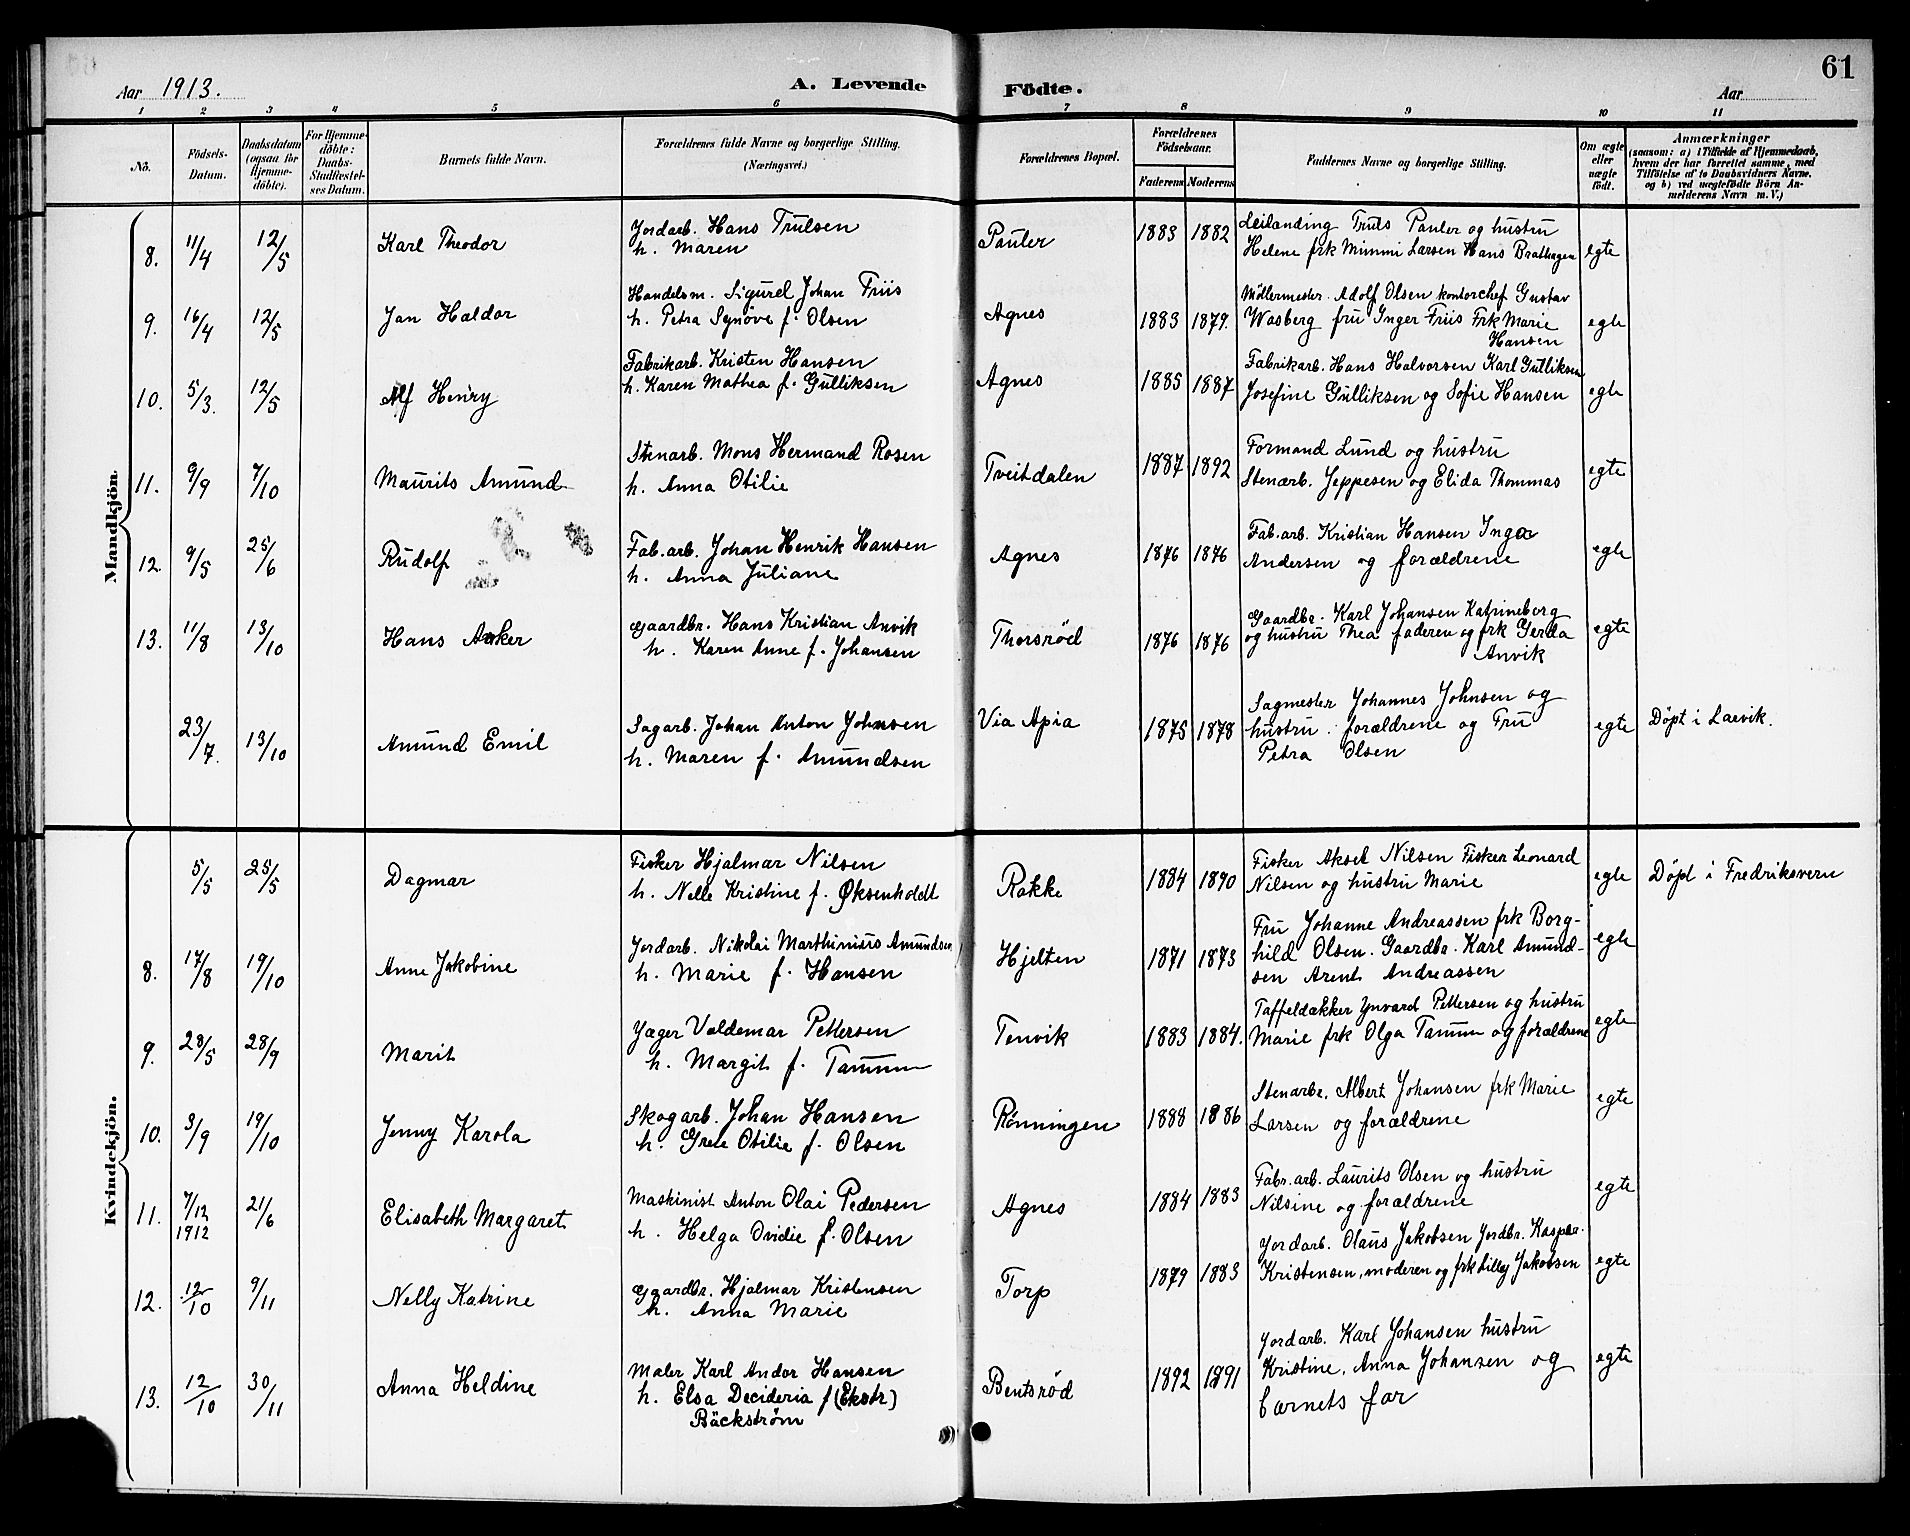 61
Aar 1913.
A. Levende Födte.
Aar
1 2 3 4 5 6 7 8 9 10 11
No.
Födsels-Datum.
Daabsdatum (ogsaa for Hjemmedöbte).
For Hjemmedöbte: Daabs-Stadfestelses Datum.
Barnets fulde Navn.
Forældrenes fulde Navne og borgerlige Stilling. (Næringsvei.)
Forældrenes Bopæl.
Forældrenes Födselsaar.
Faderens Moderens
Faddernes Navne og borgerlige Stilling.
Om ægte eller uægte födt.
Anmærkninger
(saasom: a) i Tilfælde af Hjemmedaab, hvem der har forrettet samme, med Tilföielse af to Daabsvidners Navne, og b) ved uægtefödte Börn Anmelderens Navn m. V.)
Mandkjön.
8. 11/4 12/5 Karl Theodor
Jordarb. Hans Trulsen
h. Maren
Pauler 1883 1882
Leilanding Truls Pauler og hustru
Helene frk Mimmi Larsen Hans Brathagen
egte
9. 16/4 12/5 Jan Haldor
Handelsm. Sigurd Johan Friis
h. Petra Synöve f. Olsen
Agnes 1883 1879.
Møllermester. Adolf Olsen kontorchef Gustav
Wasberg fru Inger Friis Frk Marie
Hansen
egte
10. 5/3. 12/5 Alf Henry
Fabrikarb. Kristen Hansen
h. Karen Mathea f. Gulliksen
Agnes 1885 1887
Fabrikarb. Hans Halvorsen Karl Gulliksen
Josefine Gulliksen og Sofie Hansen
egte
11. 9/9 7/10 Maurits Amund
Stenarb. Mons Hermand Rosen
h. Anna Otilie
Tveitdalen 1887 1892
Formand Lund og hustru
Stenarb. Jeppesen og Elida Thommas
egte
12. 9/5 25/6 Rudolf
Fab.arb. Johan Henrik Hansen
h. Anna Juliane
Agnes 1876 1876
Fab.arb. Kristian Hansen Inga
Andersen og forældrene
egte
13. 11/8 13/10 Hans Anker
Gaardbr. Hans Kristian Anvik
h. Karen Anne f. Johansen
Thorsröd 1876 1876
Gaardbr. Karl Johansen Katrineborg
og hustru Thea faderen og frk Gerda
Anvik
egte
23/7. 13/10 Amund Emil
Sagarb. Johan Anton Johnsen
h. Maren f. Amundsen
Via Apia 1875 1878
Sagmester Johannes Johnsen og
hustru. forældrene og Fru
Petra Olsen
egte
Døpt i Laevik.
Kvindekjön.
5/5 25/5 Dagmar
Fisker Hjalmar Nilsen
h. Nelle Kristine f. Øksenholdt
Rakke 1884 1890
Fisker Aksel Nilsen Fisker Leonard
Nilsen og hustru Marie
egte
Døpt i Fredriksvern
8. 17/8 19/10 Anne Jakobine
Jordarb. Nikolai Marthinius Amundsen
h. Marie f. Hansen
Hjelten 1871 1873
Fru Johanne Andreassen frk Borg-
hild Olsen. Gaardbr. Karl Amund-
sen Arent Andreassen
egte
9. 28/5 28/9 Marit
Jæger Valdemar Pettersen
h. Margit f. Tanum
Tenvik 1883 1884.
Taffeldækker Ynvard Pettersen og hustru
Marie frk Olga Tanum og forældrene
egte
10. 3/9 19/10 Jenny Karola
Skogarb. Johan Hansen
h. Grete Otilie f. Olsen
Rönningen 1888 1886
Stenarbr. Albert Johansen frk Marie
Larsen og forældrene
egte
11. 7/12 1912 21/6 Elisabeth Margaret
Maskinist Anton Olai Pedersen
h. Helga Ovidie f. Olsen
Agnes 1884 1883
Fabr.arb. Laurits Olsen og hustru
Nilsine og forældrene
egte
12. 12/10 9/11 Nelly Katrine
Gaardbr. Hjalmar Kristensen
h. Anna Marie
Torp 1879 1883
Jordarb. Olaus Jakobsen Jordbr. Kasper
Kristensen, moderen og frk Lilly Jakobsen
egte
13. 12/10 30/11 Anna Heldine
Maler Karl Andor Hansen
h. Elsa Decideria f (Ekstr)
Bäckström
Bentsröd 1892 1891
Jordarb. Karl Johansen hustru
Kristine, Anna Johansen og
barnets far
egte